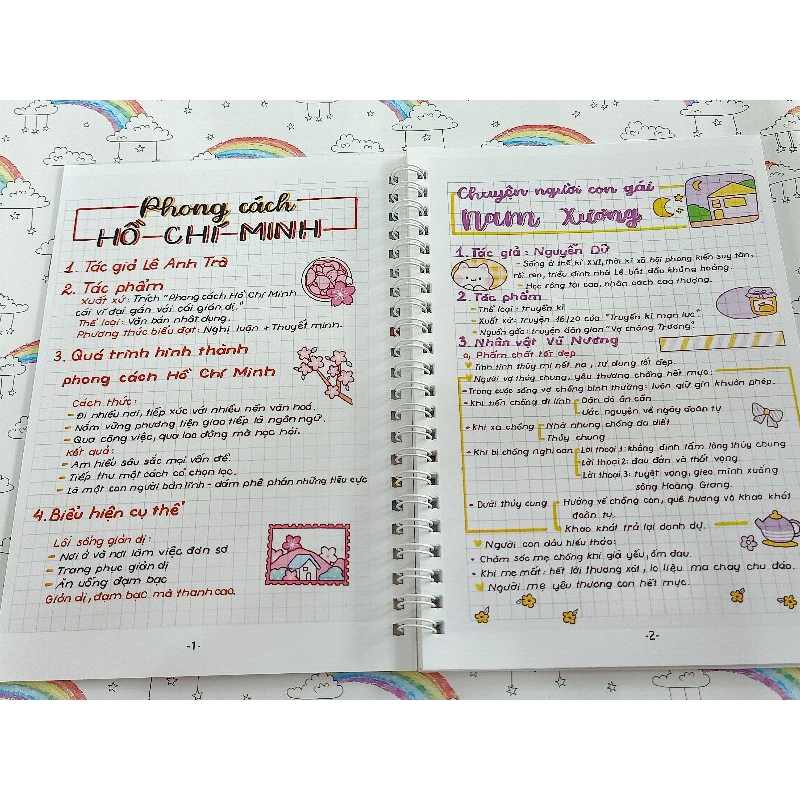 Phong cách
HỒ CHÍ MINH
1. Tác giả Lê Anh Trà
2. Tác phẩm
Xuất xứ: Trích "Phong cách Hồ Chí Minh
cái vĩ đại gắn với cái giản dị."
Thể loại: Văn bản nhật dụng.
Phương thức biểu đạt: Nghị luận + Thuyết minh.
3. Quá trình hình thành
phong cách Hồ Chí Minh
Cách thức:
- Đi nhiều nơi, tiếp xúc với nhiều nền văn hoá.
- Nắm vững phương tiện giao tiếp là ngôn ngữ.
- Qua công việc, qua lao động mà học hỏi.
Kết quả:
- Am hiểu sâu sắc mọi vấn đề
- Tiếp thu một cách có chọn lọc.
- Là một con người bản lĩnh - dám phê phán những tiêu cực
4. Biểu hiện cụ thể
Lối sống giản dị:
- Nơi ở và nơi làm việc đơn sơ
- Trang phục giản dị
- Ăn uống đạm bạc
Giản dị, đạm bạc mà thanh cao.
-1-
Chuyện người con gái
Nam Xương
1. Tác giả: Nguyễn Dữ
- Sống ở thế kỉ XVI, thời kì xã hội phong kiến suy tàn,
rối ren, triều đình nhà Lê bắt đầu khủng hoảng.
- Học rộng tài cao, nhân cách cao thượng.
2. Tác phẩm
- Thể loại: truyền kì
- Xuất xứ: Truyện 16/20 của "Truyền kì mạn lục".
- Nguồn gốc: truyện dân gian "Vợ chàng Trương".
3. Nhân vật Vũ Nương
a, Phẩm chất tốt đẹp
Tính tình thùy mị nết na, tư dung tốt đẹp.
Người vợ thủy chung, yêu thương chồng hết mực:
- Trong cuộc sống vợ chồng bình thường: luôn giữ gìn khuôn phép.
- Khi tiễn chồng đi lính
Dặn dò ân cần
Ước nguyện về ngày đoàn tụ
- Khi xa chồng
Nhớ nhung chồng da diết
Thủy chung
- Khi bị chồng nghi oan
Lời thoại 1: khẳng định tấm lòng thủy chung
Lời thoại 2: đau đớn và thất vọng.
Lời thoại 3: tuyệt vọng, gieo mình xuống
sông Hoàng Giang.
- Dưới thủy cung
Hướng về chồng con, quê hương và khao khát
đoàn tụ.
Khao khát trả lại danh dự.
Người con dâu hiếu thảo:
- Chăm sóc mẹ chồng khi già yếu, ốm đau.
- Khi mẹ mất: hết lời thương xót, lo liệu ma chay chu đáo.
Người mẹ yêu thương con hết mực.
-2-